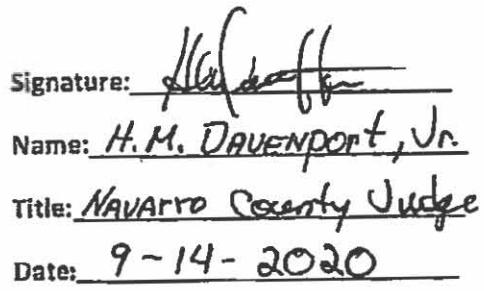 Signature:
Name: H.M. DAVENPORT, Jr.
Title: NAVARRO County Judge
Date: 9-14-2020